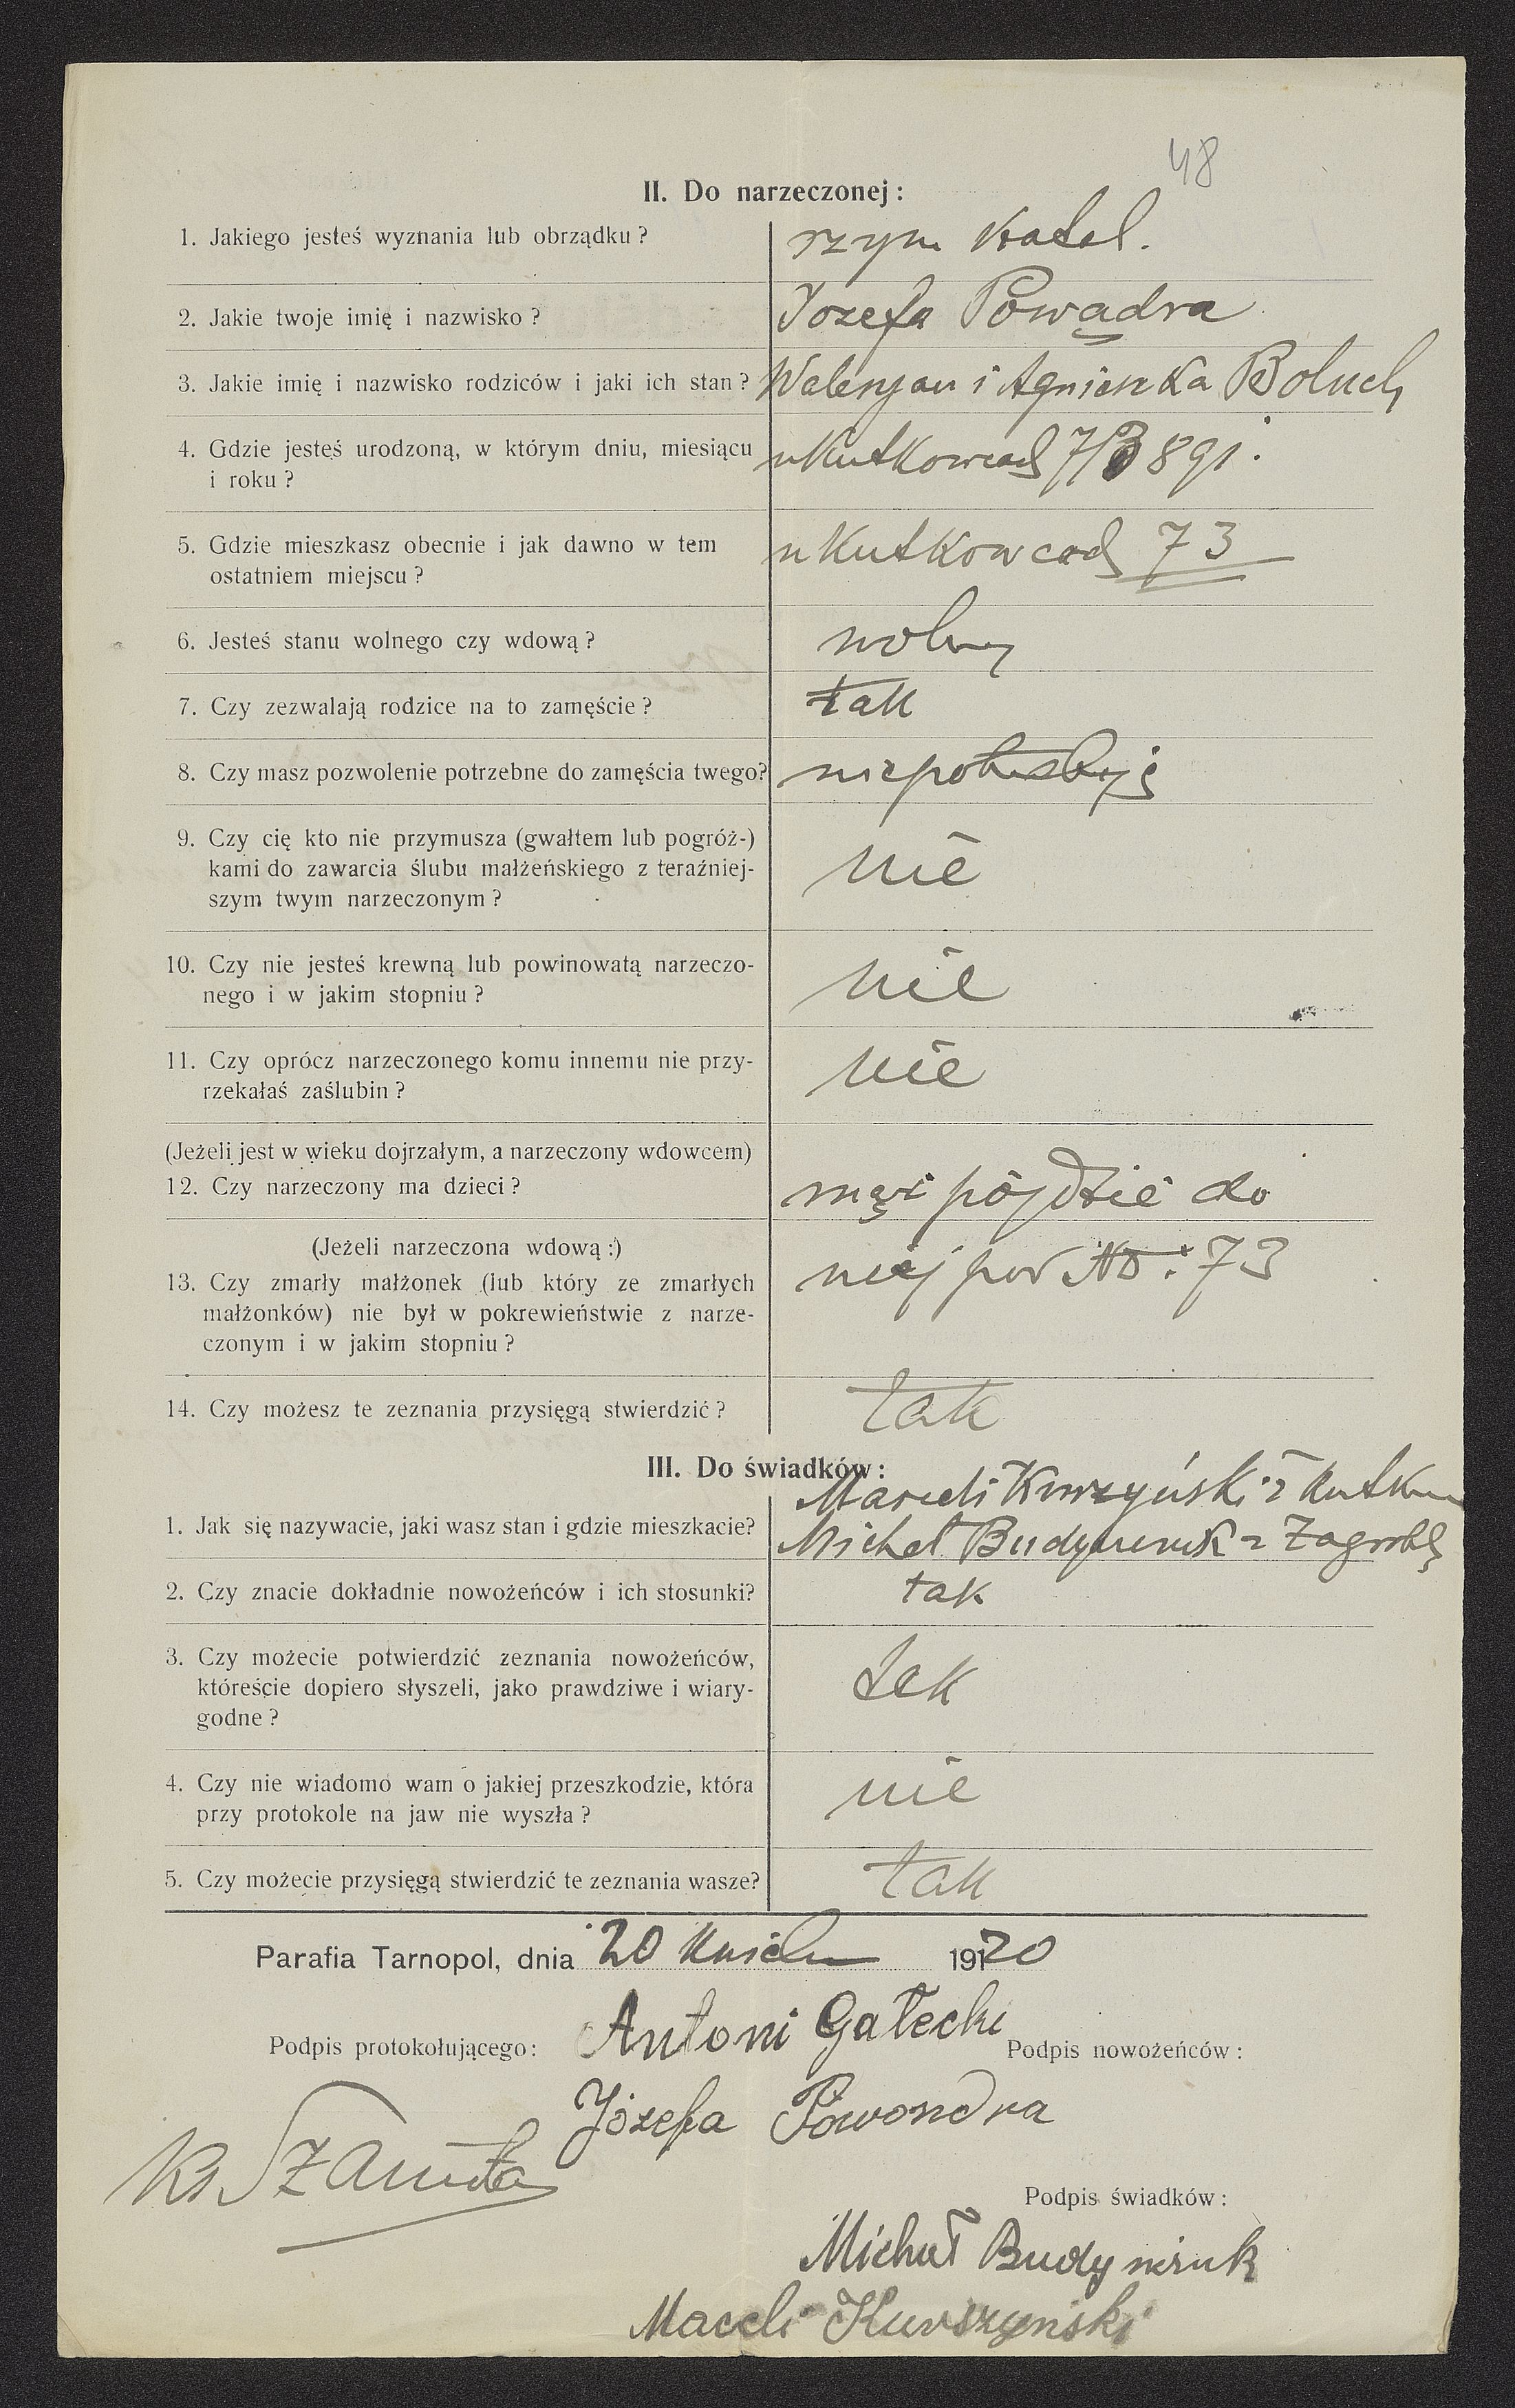 48
II. Do narzeczonej:
1. Jakiego jesteś wyznania lub obrządku? rzym katol.
2. Jakie twoje imię i nazwisko? Jozefa Powądra
3. Jakie imię i nazwisko rodziców i jaki ich stan? Waleryan i Agnieszka Boluch
4. Gdzie jesteś urodzoną, w którym dniu, miesiącu
i roku? w Kutkowcach 7/3 891.
5. Gdzie mieszkasz obecnie i jak dawno w tem
ostatniem miejscu? w Kutkowcach 73
6. Jesteś stanu wolnego czy wdową? wolny
7. Czy zezwalają rodzice na to zamęście? tak
8. Czy masz pozwolenie potrzebne do zamęścia twego? niepotrzebuję
9. Czy cię kto nie przymusza (gwałtem lub pogróż-)
kami do zawarcia ślubu małżeńskiego z teraźniej-
szym twym narzeczonym? nie
10. Czy nie jesteś krewną lub powinowatą narzeczo-
nego i w jakim stopniu? nie
11. Czy oprócz narzeczonego komu innemu nie przy-
rzekałaś zaślubin? nie
(Jeżeli jest w wieku dojrzałym, a narzeczony wdowcem)
12. Czy narzeczony ma dzieci? mąż pójdzie do
(Jeżeli narzeczona wdową:)
niej pod No: 73
13. Czy zmarły małżonek (lub który ze zmarłych
małżonków) nie był w pokrewieństwie z narze-
czonym i w jakim stopniu?
14. Czy możesz te zeznania przysięgą stwierdzić? tak
III. Do świadków:
Marceli Kurzyński z Kutkow
1. Jak się nazywacie, jaki wasz stan i gdzie mieszkacie? Michał Budyneruk z Zagrobelę
2. Czy znacie dokładnie nowożeńców i ich stosunki? tak
3. Czy możecie potwierdzić zeznania nowożeńców,
któreście dopiero słyszeli, jako prawdziwe i wiary-
godne? tak
4. Czy nie wiadomo wam o jakiej przeszkodzie, która
przy protokole na jaw nie wyszła? nie
5. Czy możecie przysięgą stwierdzić te zeznania wasze? tak
Parafia Tarnopol, dnia 20 Kwietn 1920
Antoni Gałecki
Podpis protokołującego: Podpis nowożeńców:
Józefa Powondra
Ks Szamota
Podpis świadków:
Michał Budyneruk
Maceli Kurszyński